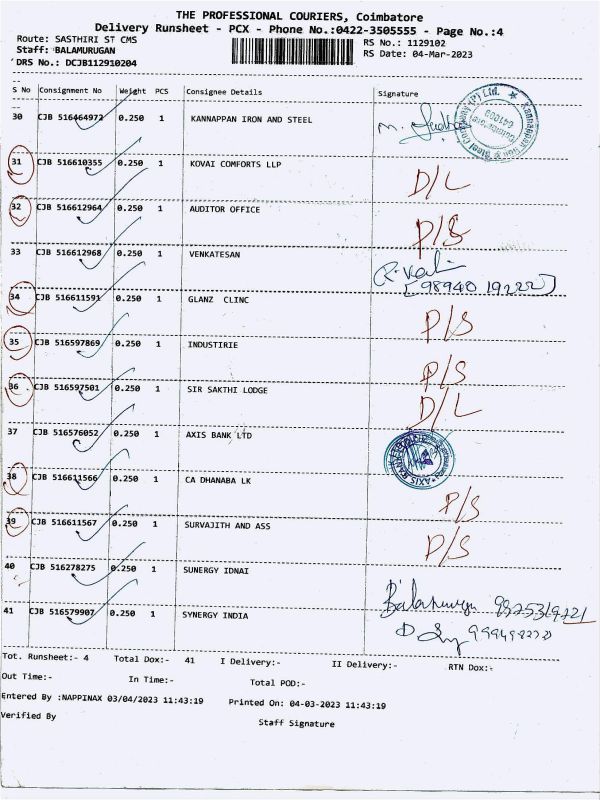 THE PROFESSIONAL COURIERS, Coimbatore
Delivery Runsheet - PCX - Phone No.:0422-3505555 - Page No.:4
Route: SASTHIRI ST CMS RS No.: 1129102
Staff: BALAMURUGAN RS Date: 04-Mar-2023
DRS No.: DCJB112910204
S No Consignment No Weight PCS Consignee Details Signature
30 CJB 516464972 0.250 1 KANNAPPAN IRON AND STEEL
31 CJB 516610355 0.250 1 KOVAI COMFORTS LLP D/L
32 CJB 516612964 0.250 1 AUDITOR OFFICE P/S
33 CJB 516612968 0.250 1 VENKATESAN
[98940 19222]
34 CJB 516611591 0.250 1 GLANZ CLINC P/S
35 CJB 516597869 0.250 1 INDUSTIRIE P/S
36 CJB 516597501 0.250 1 SIR SAKTHI LODGE D/L
37 CJB 516576052 0.250 1 AXIS BANK LTD
38 CJB 516611566 0.250 1 CA DHANABA LK P/S
39 CJB 516611567 0.250 1 SURVAJITH AND ASS P/S
40 CJB 516278275 0.250 1 SUNERGY IDNAI
41 CJB 516579907 0.250 1 SYNERGY INDIA
Tot. Runsheet:- 4 Total Dox:- 41 I Delivery:- II Delivery:- RTN Dox:-
Out Time:- In Time:- Total POD:-
Entered By :NAPPINAX 03/04/2023 11:43:19 Printed On: 04-03-2023 11:43:19
Verified By Staff Signature